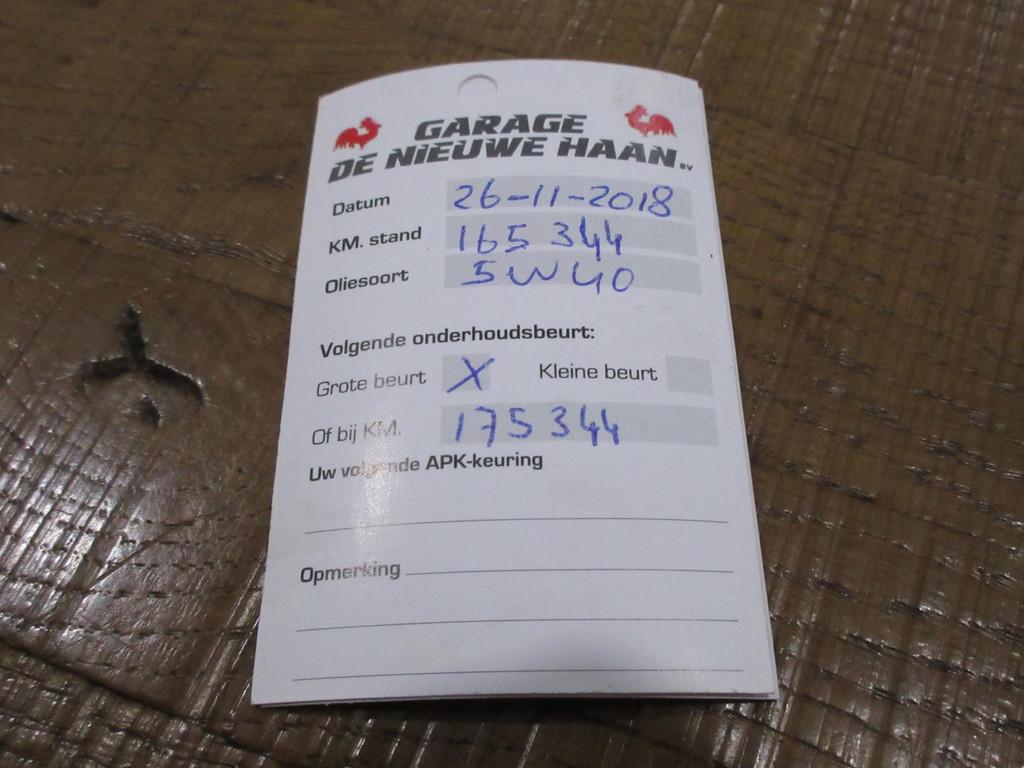 GARAGE
DE NIEUWE HAAN BV
Datum 26-11-2018
KM. stand 165 344
Oliesoort 5W40
Volgende onderhoudsbeurt:
Grote beurt X Kleine beurt
Of bij KM. 175 344
Uw volgende APK-keuring
Opmerking